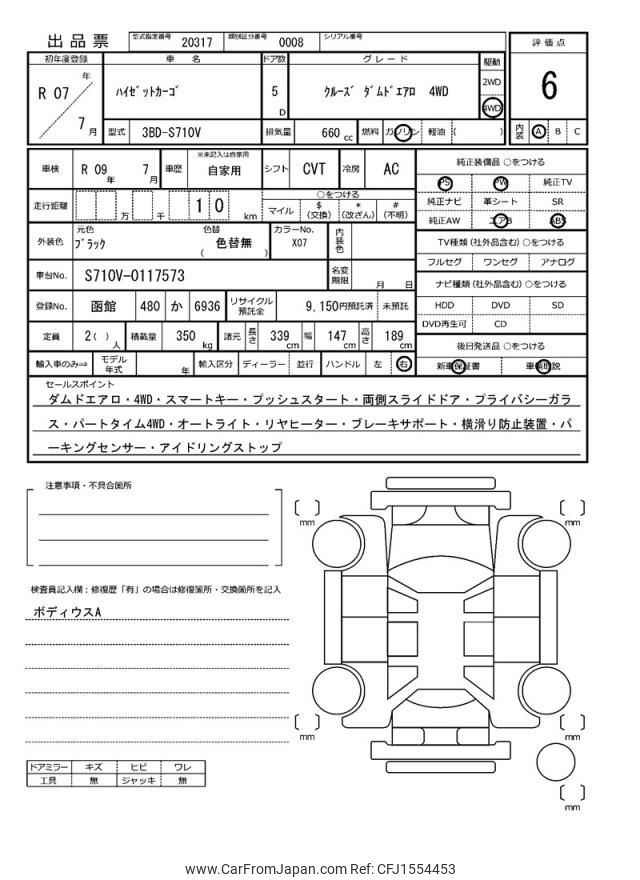 出品票 型式指定番号 20317 類別区分番号 0008 シリアル番号
初年度登録 車名 ドア数 グレード 駆動 評価点
R 07 年 7 月
ハイゼットカーゴ 5 D クルーズ ダムドエアロ 4WD
2WD
4WD
6
型式 3BD-S710V 排気量 660 cc 燃料 ガソリン 軽油 ( )
内装 A B C
車検 R 09 年 7 月 車歴 ※未記入は自家用 自家用 シフト CVT 冷房 AC
走行距離 万 千 1 0 km
○をつける
マイル $ (交換) * (改ざん) # (不明)
外装色 元色 ブラック 色替 ( 色替無 ) カラーNo. X07 内装色
車台No. S710V-0117573 名変期限 月 日
登録No. 函館 480 か 6936 リサイクル預託金 9,150円預託済 未預託
定員 2( ) 人 積載量 350 kg 諸元 長さ 339 cm 幅 147 cm 高さ 189 cm
輸入車のみ⇒ モデル年式 年 輸入区分 ディーラー 並行 ハンドル 左 右
純正装備品 ○をつける
PS PW 純正TV
純正ナビ 革シート SR
純正AW エアB ABS
TV種類 (社外品含む) ○をつける
フルセグ ワンセグ アナログ
ナビ種類 (社外品含む) ○をつける
HDD DVD SD
DVD再生可 CD
後日発送品 ○をつける
新車保証書 車輌取説
セールスポイント
ダムドエアロ・4WD・スマートキー・プッシュスタート・両側スライドドア・プライバシーガラ
ス・パートタイム4WD・オートライト・リヤヒーター・ブレーキサポート・横滑り防止装置・パ
ーキングセンサー・アイドリングストップ
注意事項・不具合箇所
検査員記入欄：修復歴「有」の場合は修復箇所・交換箇所を記入
ボディウスA
ドアミラー キズ ヒビ ワレ
工具 無 ジャッキ 無
[ ] mm
[ ] mm
[ ] mm
[ ] mm
[ ] mm
www.CarFromJapan.com Ref: CFJ1554453